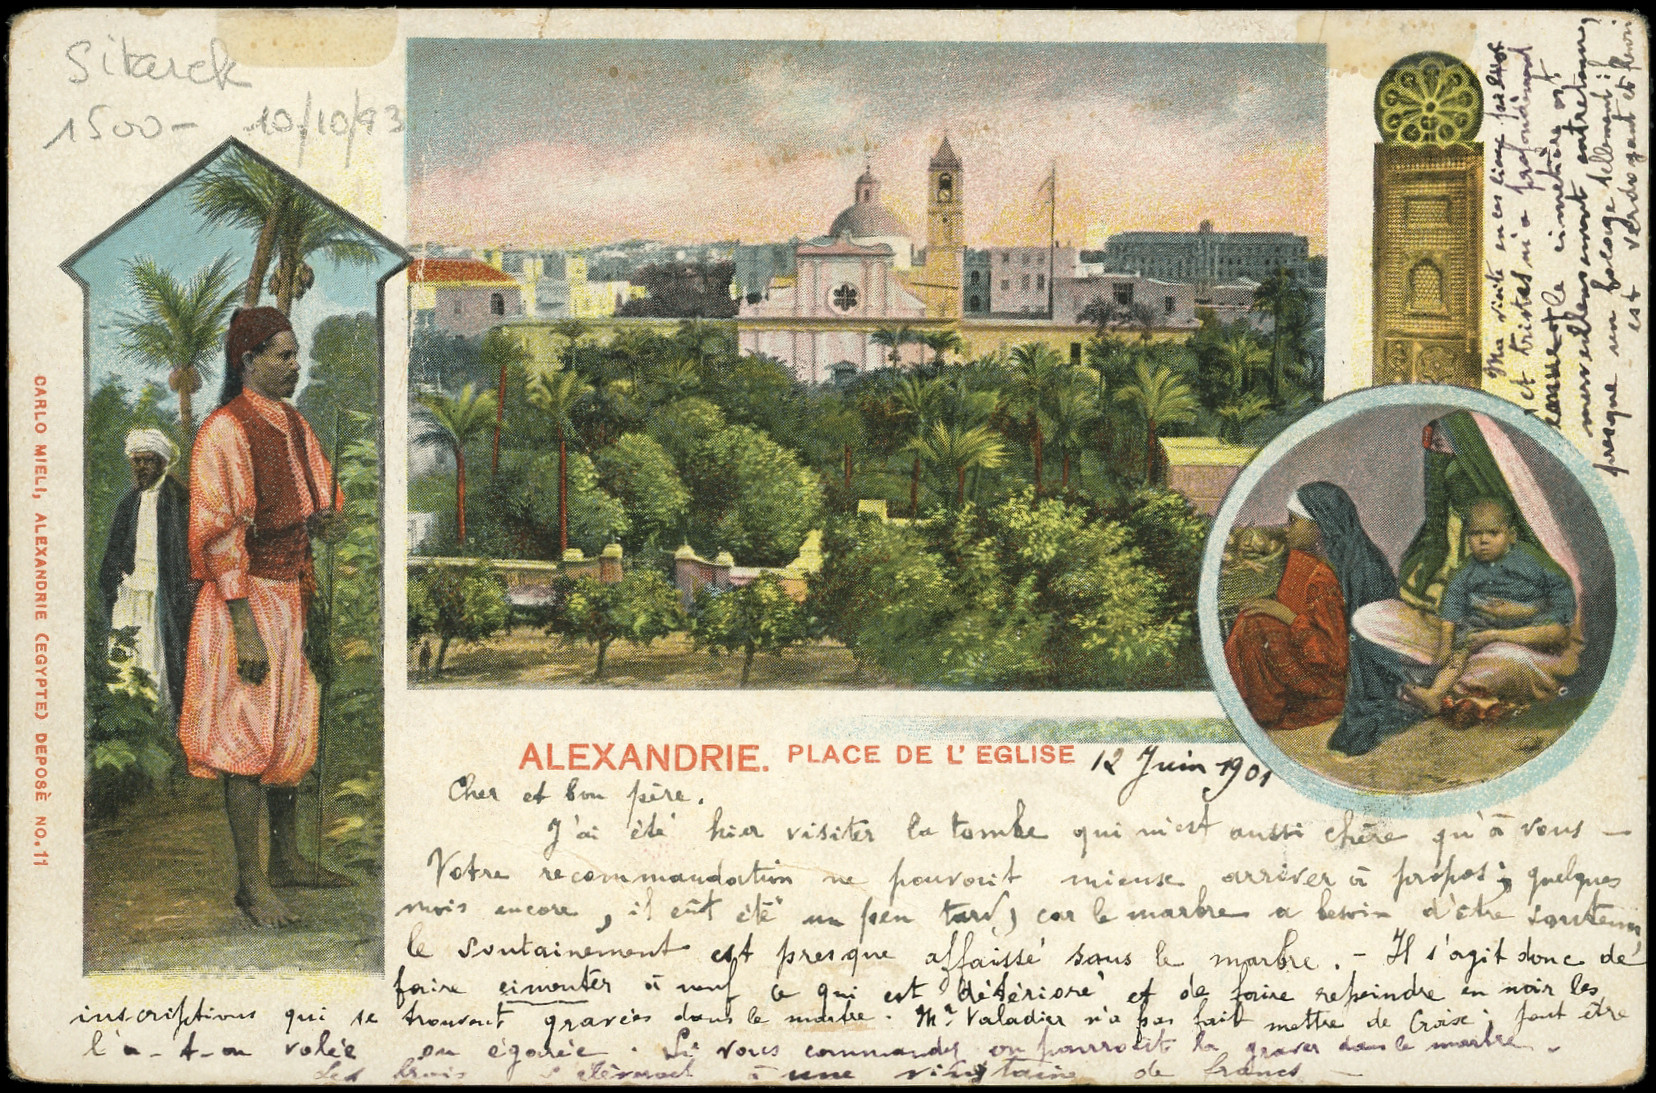 Sitarck
1500- 10/10/93
CARLO MIELI, ALEXANDRIE (EGYPTE) DEPOSÈ NO. 11
ALEXANDRIE. PLACE DE L'EGLISE
12 Juin 1901
Cher et bon père.
J'ai été hier visiter la tombe qui m'est aussi chère qu'à vous —
Votre recommandation ne pouvait mieux arriver à propos; quelques
mois encore, il eût été un peu tard, car le marbre a besoin d'être soutenu,
le soutainement est presque affaissé sous le marbre. - Il s'agit donc de
faire cimenter à neuf ce qui est détérioré et de faire repeindre en noir les
inscriptions qui se trouvent gravées dans le marbre. Mr. Valadier n'a pas fait mettre de Croix; peut être
l'a-t-on volée ou égarée. Si vous commandez on pourrait la graver dans le marbre. -
Les frais s'élèveront à une vingtaine de francs -
Ma visite en ces lieux
et tristes m'a profondément
le cimetière est
merveilleusement entretenu,
presque un bocage tellement il
est verdoyant et fleuri.